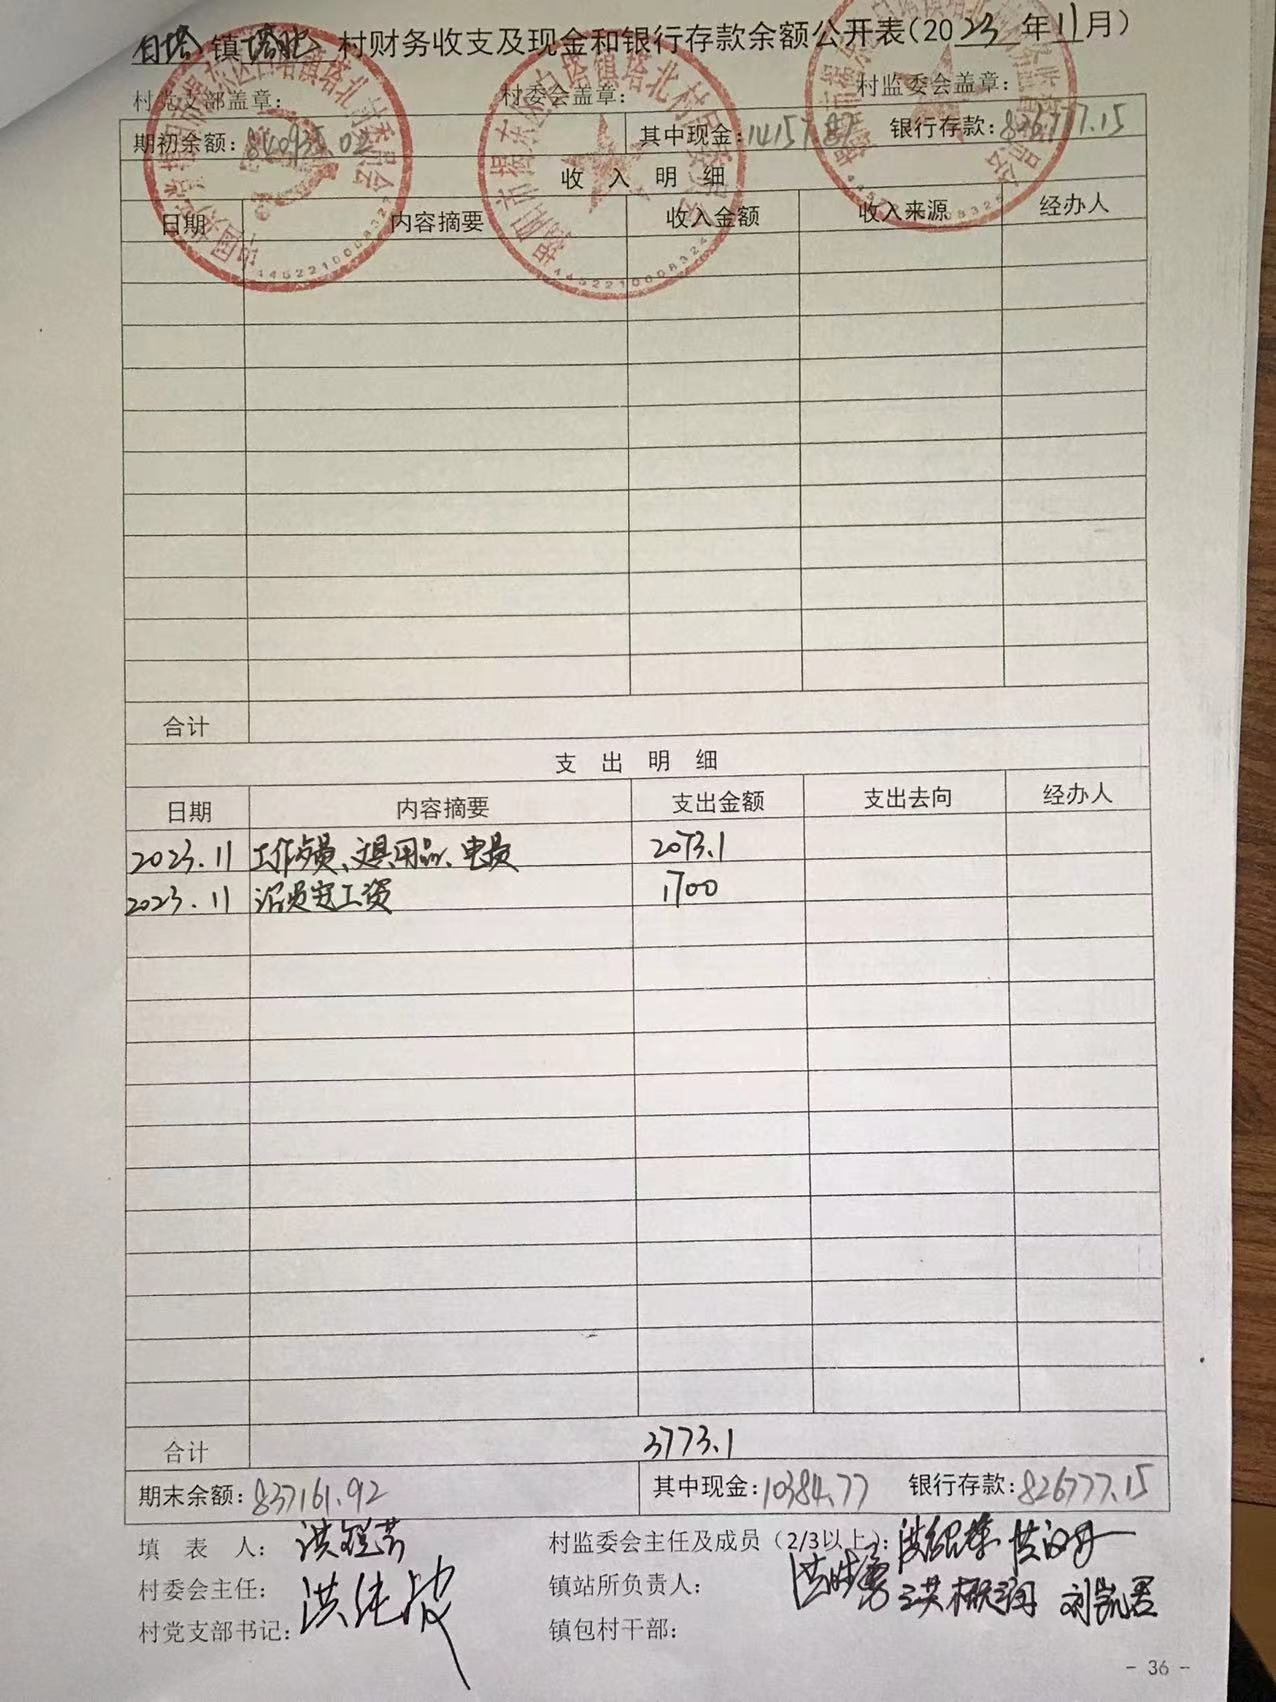 白塔镇塔北村财务收支及现金和银行存款余额公开表(2023年11月)
村党支部盖章: 村委会盖章: 村监委会盖章:
期初余额:840935.02 其中现金:14157.87 银行存款:826777.15
收 入 明 细
日期 内容摘要 收入金额 收入来源 经办人
合计
支 出 明 细
日期 内容摘要 支出金额 支出去向 经办人
2023.11 工作 、文具用品、电费 2073.1
2023.11 工资 1700
合计 3773.1
期末余额:837161.92 其中现金:10384.77 银行存款:826777.15
填 表 人: 村监委会主任及成员(2/3以上):
村委会主任: 镇站所负责人: 刘凯君
村党支部书记: 镇包村干部:
- 36 -